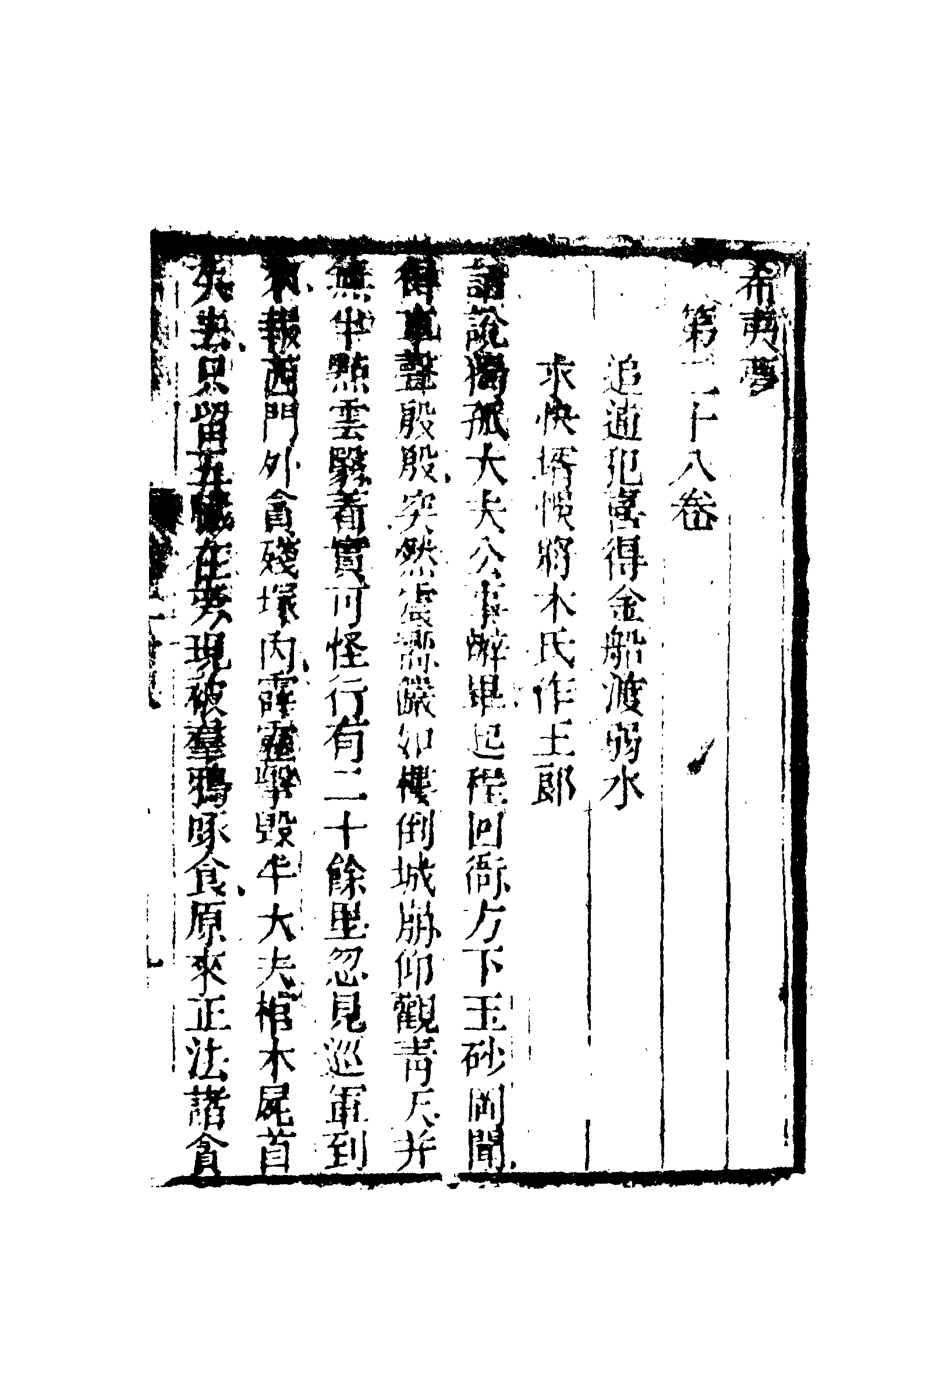 希夷夢
第二十八卷
追逋犯喜得金船渡弱水
求快壻悞將木氏作王郎
話說獨孤大夫公事辦畢起程回衙方下玉砂岡聞
得車聲殷殷突然震響儼如樓倒城崩仰觀青天并
無半點雲翳着實可怪行有二十餘里忽見巡軍到
來報西門外貪殘塚內霹靂擊毀牛大夫棺木屍首
失去只留五臟在旁現被羣鴉啄食原來正法諸貪